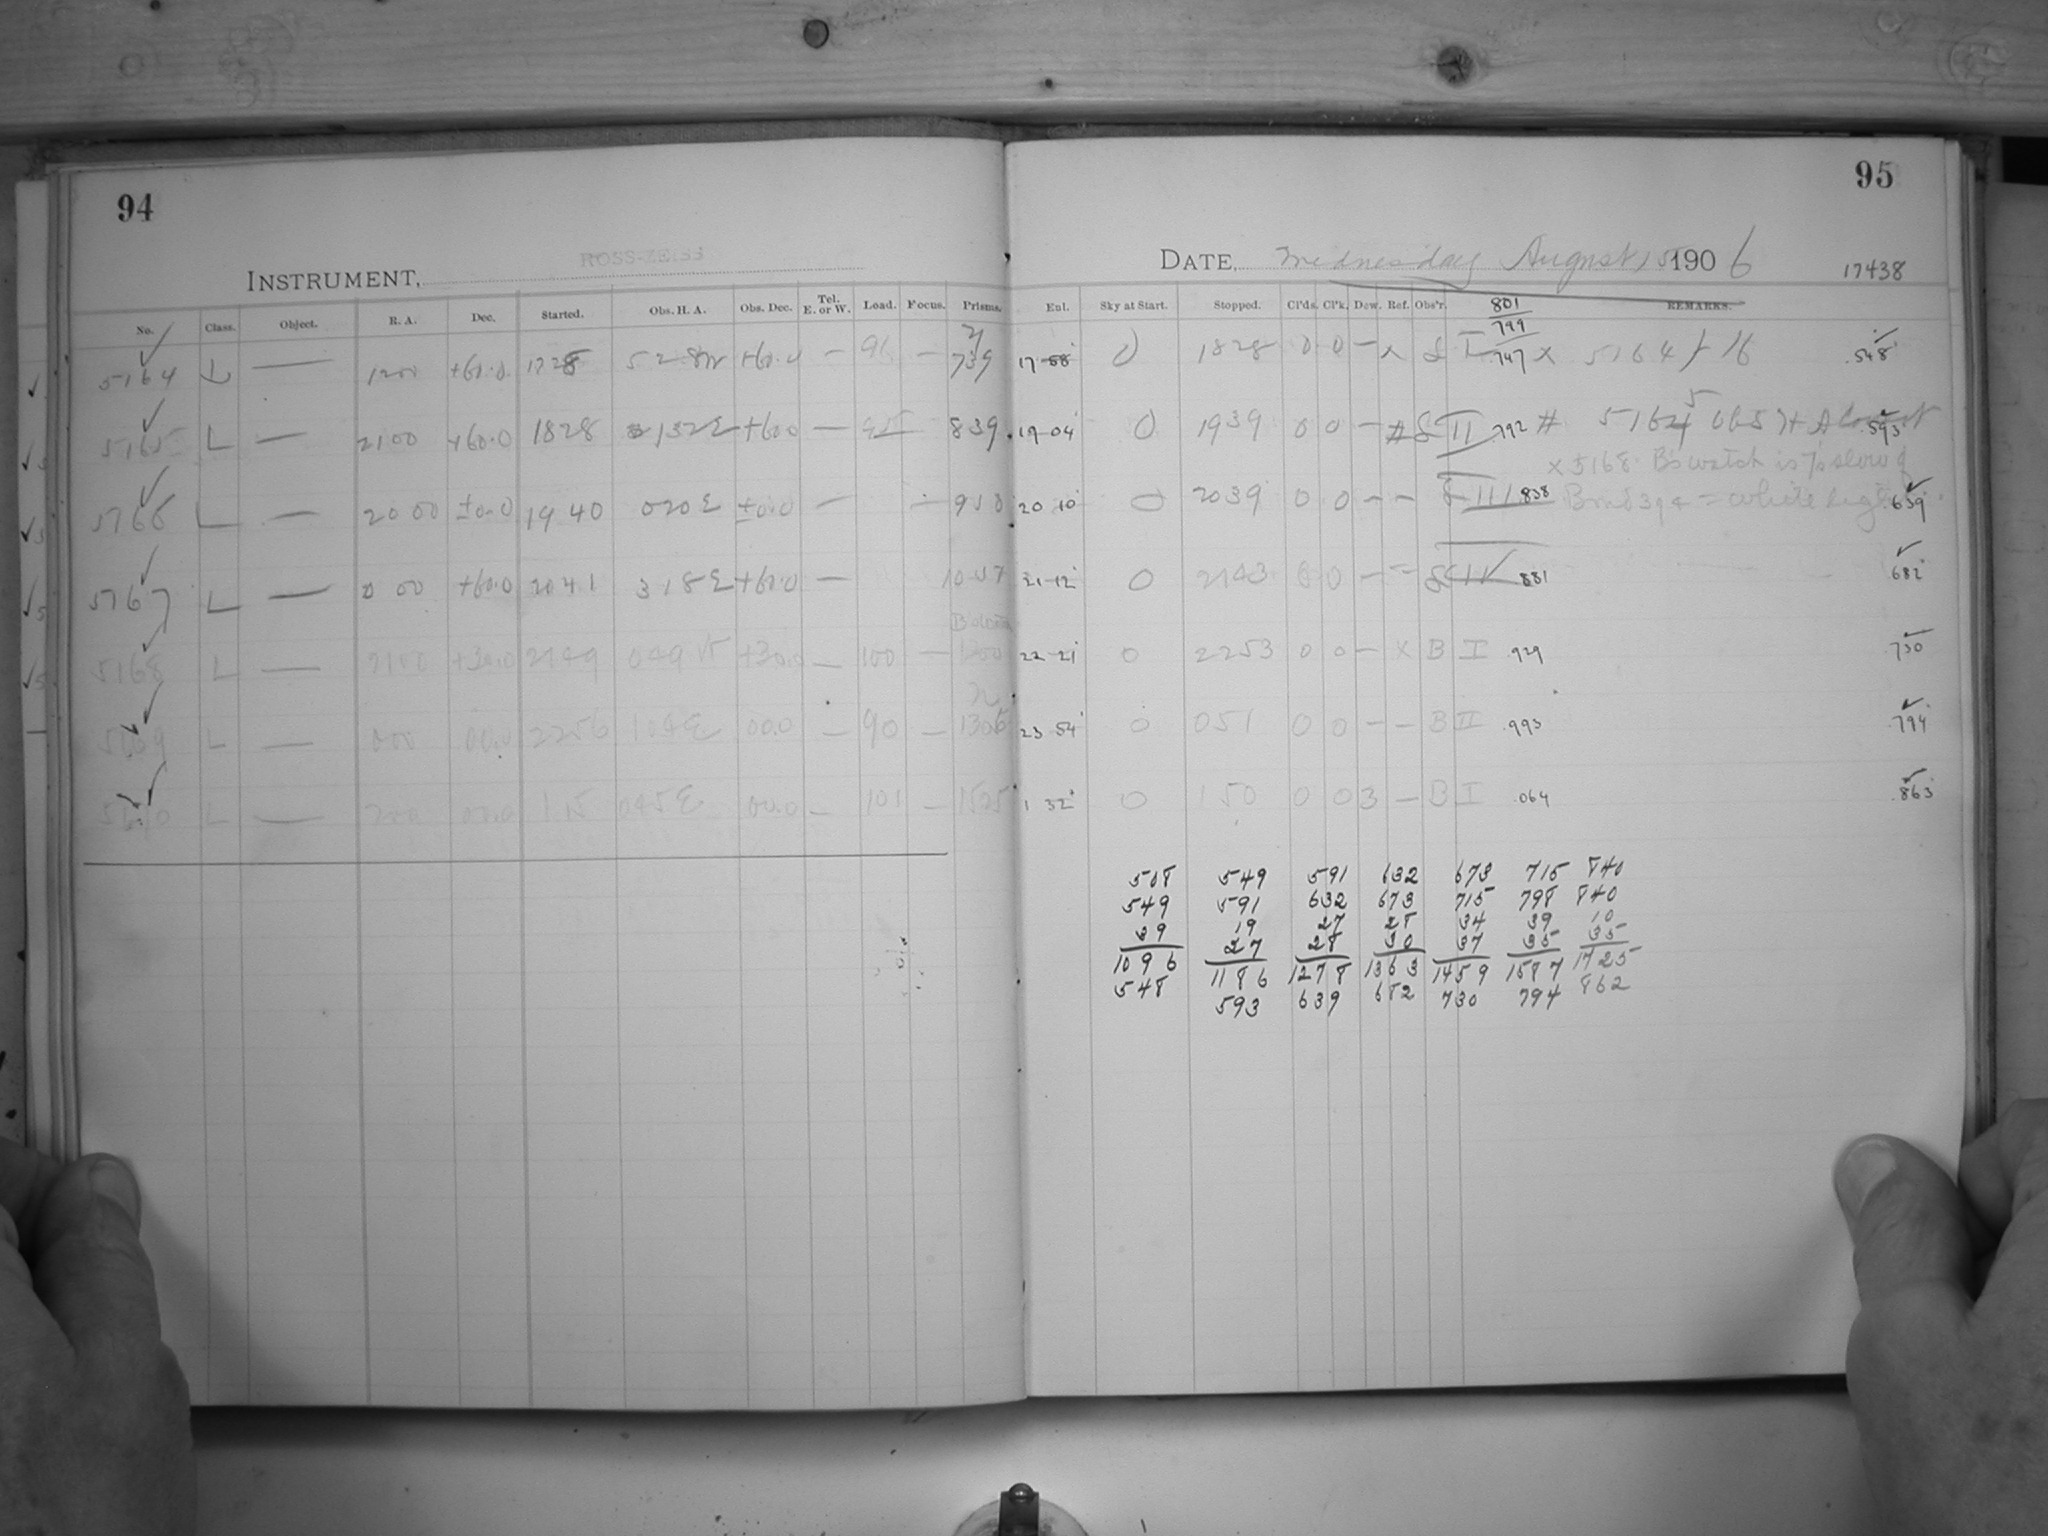 94
95
ROSS-ZEISS
INSTRUMENT,
DATE, Wednesday August 15 1906 17438
No. Class. Object. R. A. Dec. Started. Obs. H. A. Obs. Dec. Tel. E. or W. Load. Focus. Prisms. Enl. Sky at Start. Stopped. Cl'ds. Cl'k. Dew. Ref. Obs'r. REMARKS.
801
799
5164 L — 1200 +60.0 1728 528W +60.0 — — 739 17 58 0 1828 0 0 — x S I .747 x 5164 .548
5165 L — 2100 +60.0 1828 132E +60.0 — 839 19 04 0 1939 0 0 — # S II 792 # 5165 .593
x 5168 B's watch is slow of
5166 L — 2000 ±0.0 1940 020E ±0.0 — — 20 10 0 2039 0 0 — — S III .838 = white light .639
5167 L — 0 00 +60.0 2041 318E +60.0 — 21 12 0 2143 0 0 — — S IV 881 682
5168 L — 2100 +30.0 2149 049 W +30.0 — 100 — 22 21 0 2253 0 0 — x B I .929 .730
L — 000 00.0 2256 104E 00.0 — 90 — 1306 23 54 0 051 0 0 — — B II .993 .794
L — 00.0 115 045E 00.0 — 101 — 1525 1 32 0 150 0 0 3 — B I .064 .863
508 549 591 632 673 715 840
549 591 632 673 715 798 840
39 19 27 28 34 39 10
27 28 30 37 35 35
1096 1186 1278 1363 1459 1587 1725
548 593 639 682 730 794 862